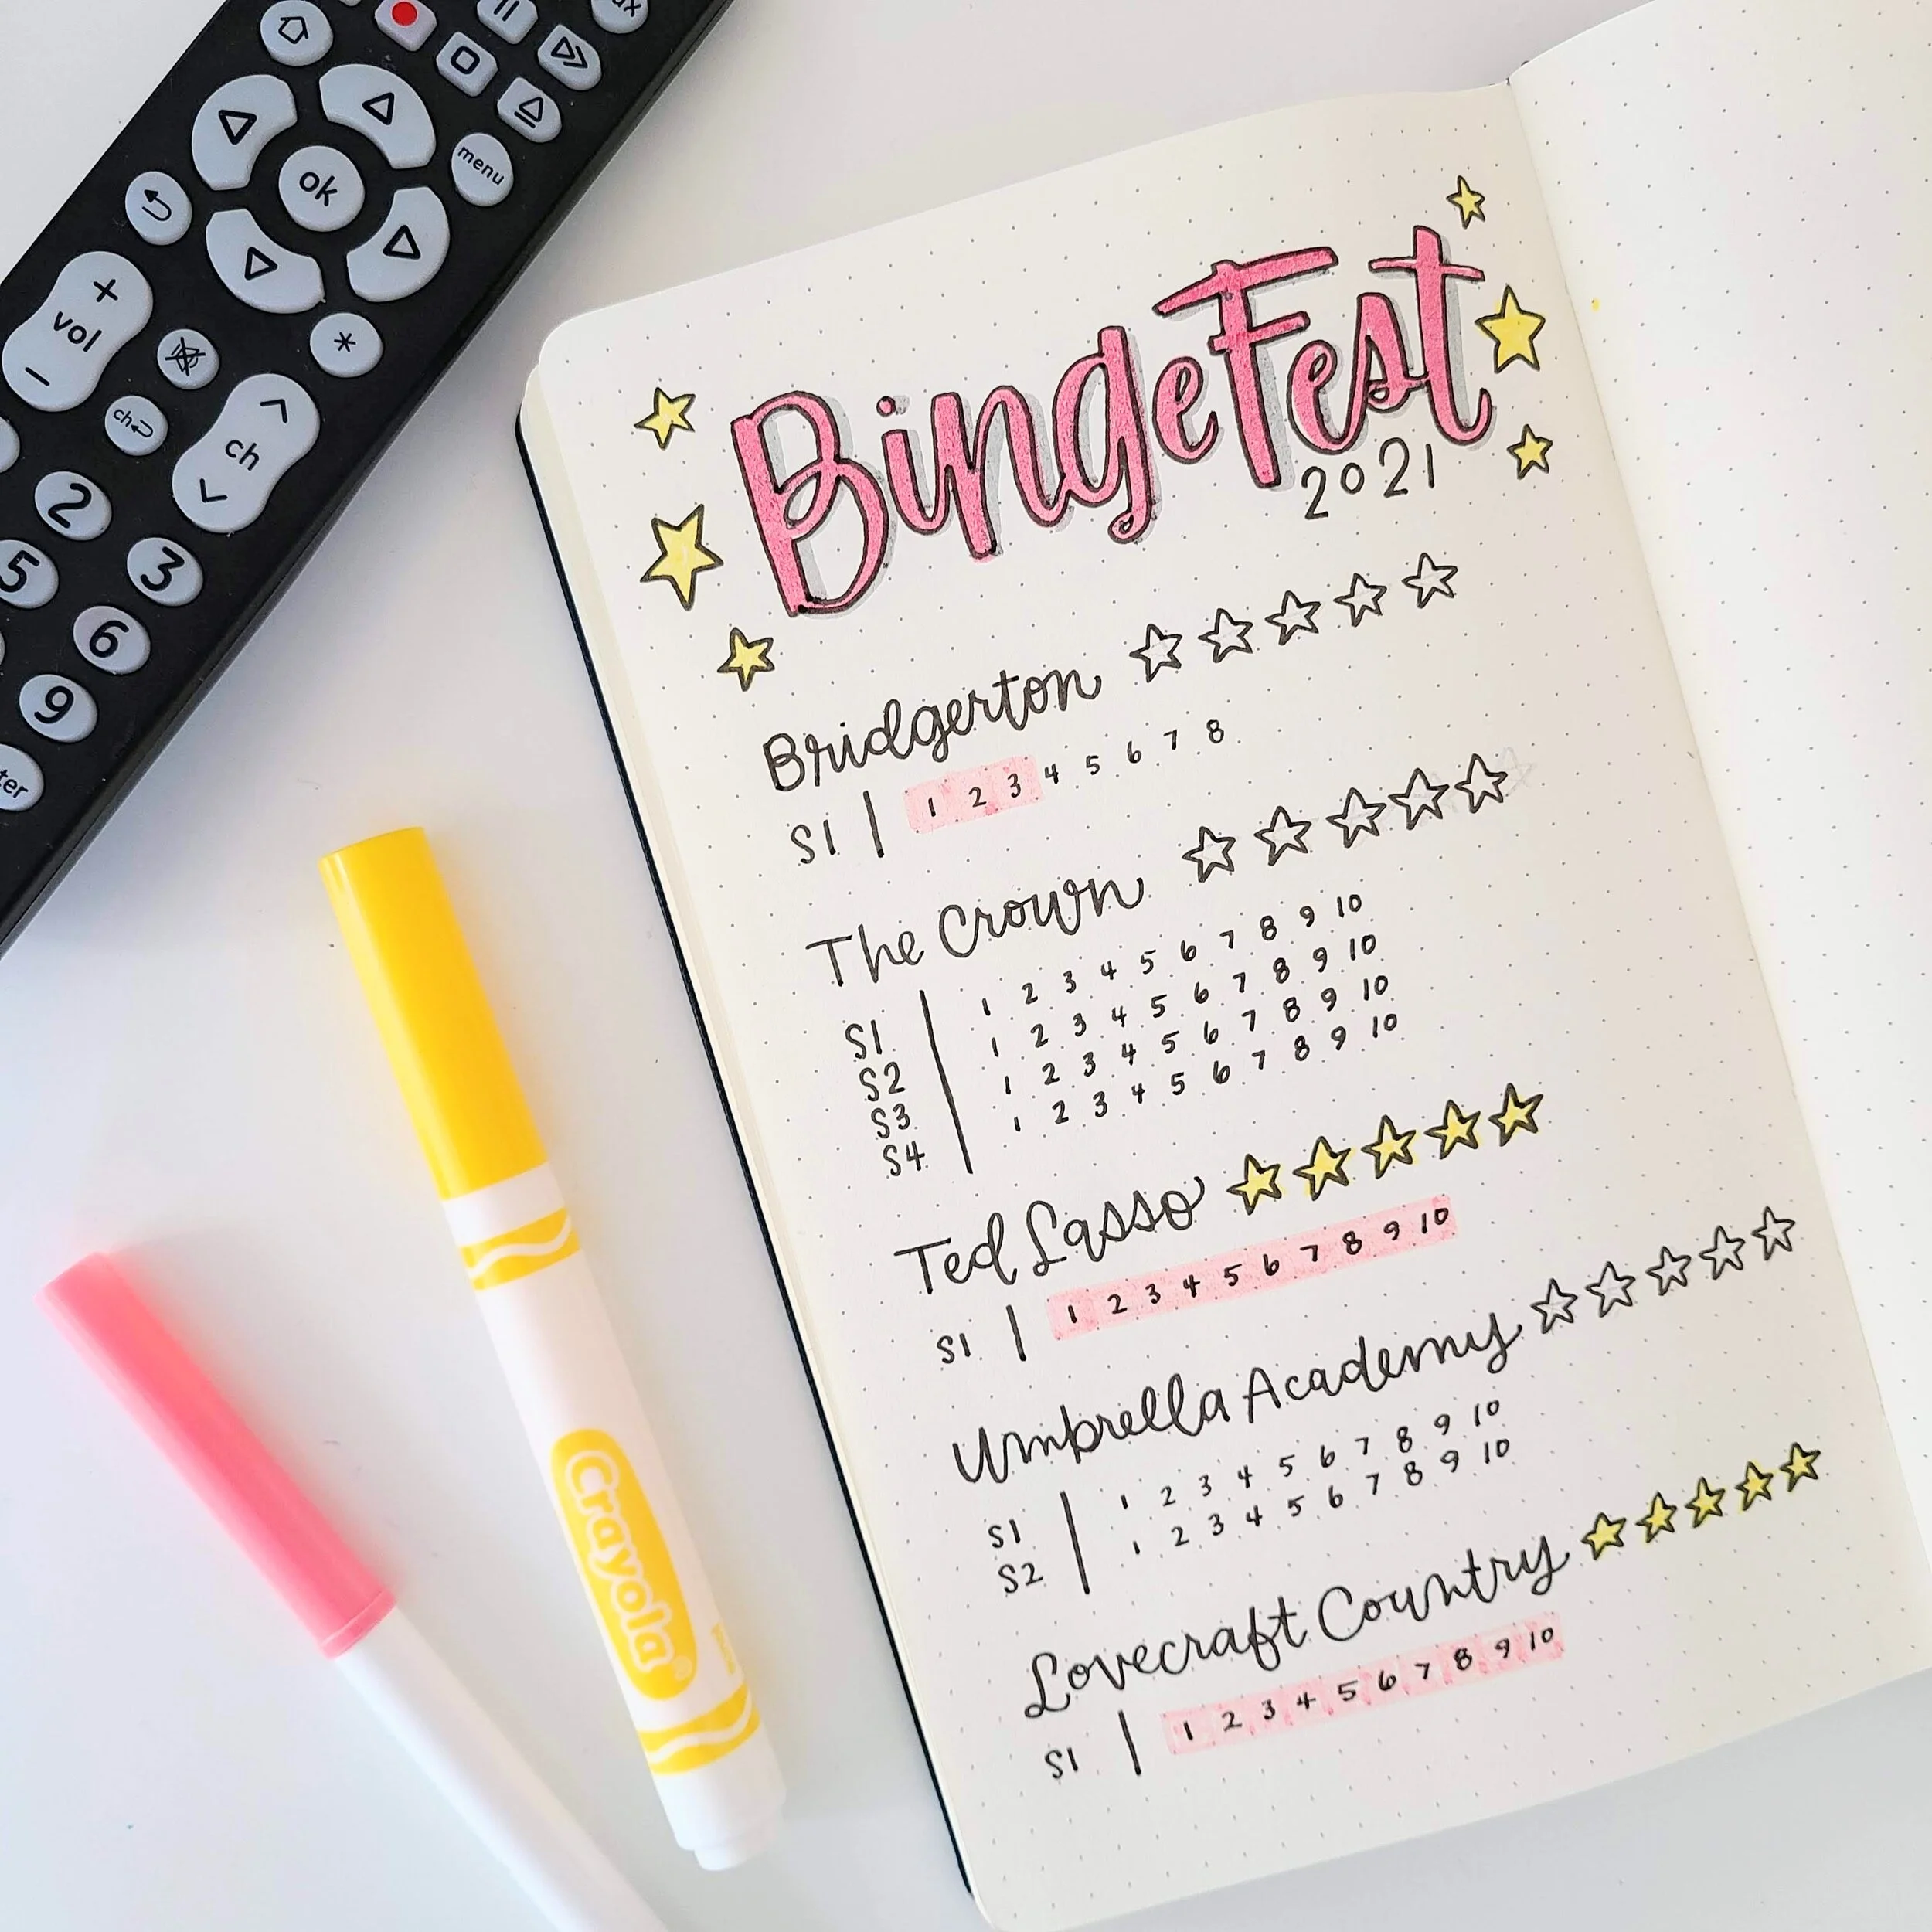 ok
menu
+
vol
-
*
ch
ch
2
3
5
6
9
BingeFest
2021
Bridgerton
S1 | 1 2 3 4 5 6 7 8
The Crown
S1 | 1 2 3 4 5 6 7 8 9 10
S2 | 1 2 3 4 5 6 7 8 9 10
S3 | 1 2 3 4 5 6 7 8 9 10
S4 | 1 2 3 4 5 6 7 8 9 10
Ted Lasso
S1 | 1 2 3 4 5 6 7 8 9 10
Umbrella Academy
S1 | 1 2 3 4 5 6 7 8 9 10
S2 | 1 2 3 4 5 6 7 8 9 10
Lovecraft Country
S1 | 1 2 3 4 5 6 7 8 9 10
Crayola®